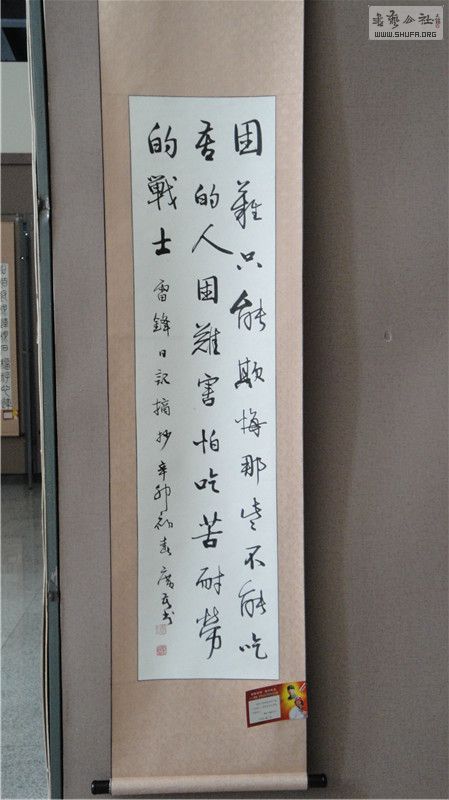 困難只能欺悔那些不能吃
苦的人困難害怕吃苦耐勞
的戰士 雷鋒日記摘抄 辛卯初春 書
書藝公社
WWW.SHUFA.ORG